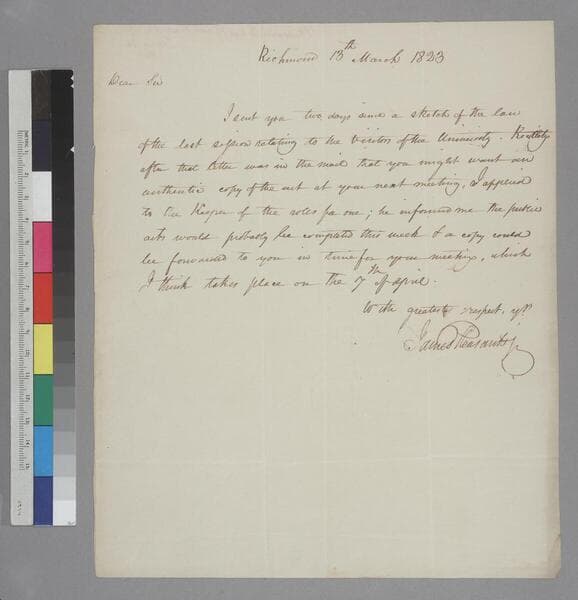 Richmond 13th March 1823
Dear Sir
I sent you two days since a sketch of the law
of the last session relating to the Visitors of the University.
after that letter was in the mail that you might want an
authentic copy of the act at your next meeting, I applied
to the Keeper of the roles for one; he informed me the public
acts would probably be completed this week & a copy could
be forwarded to you in time for your meeting, which
I think takes place on the 7th of April.
with the greatest respect, yrs
James Pleasants jr